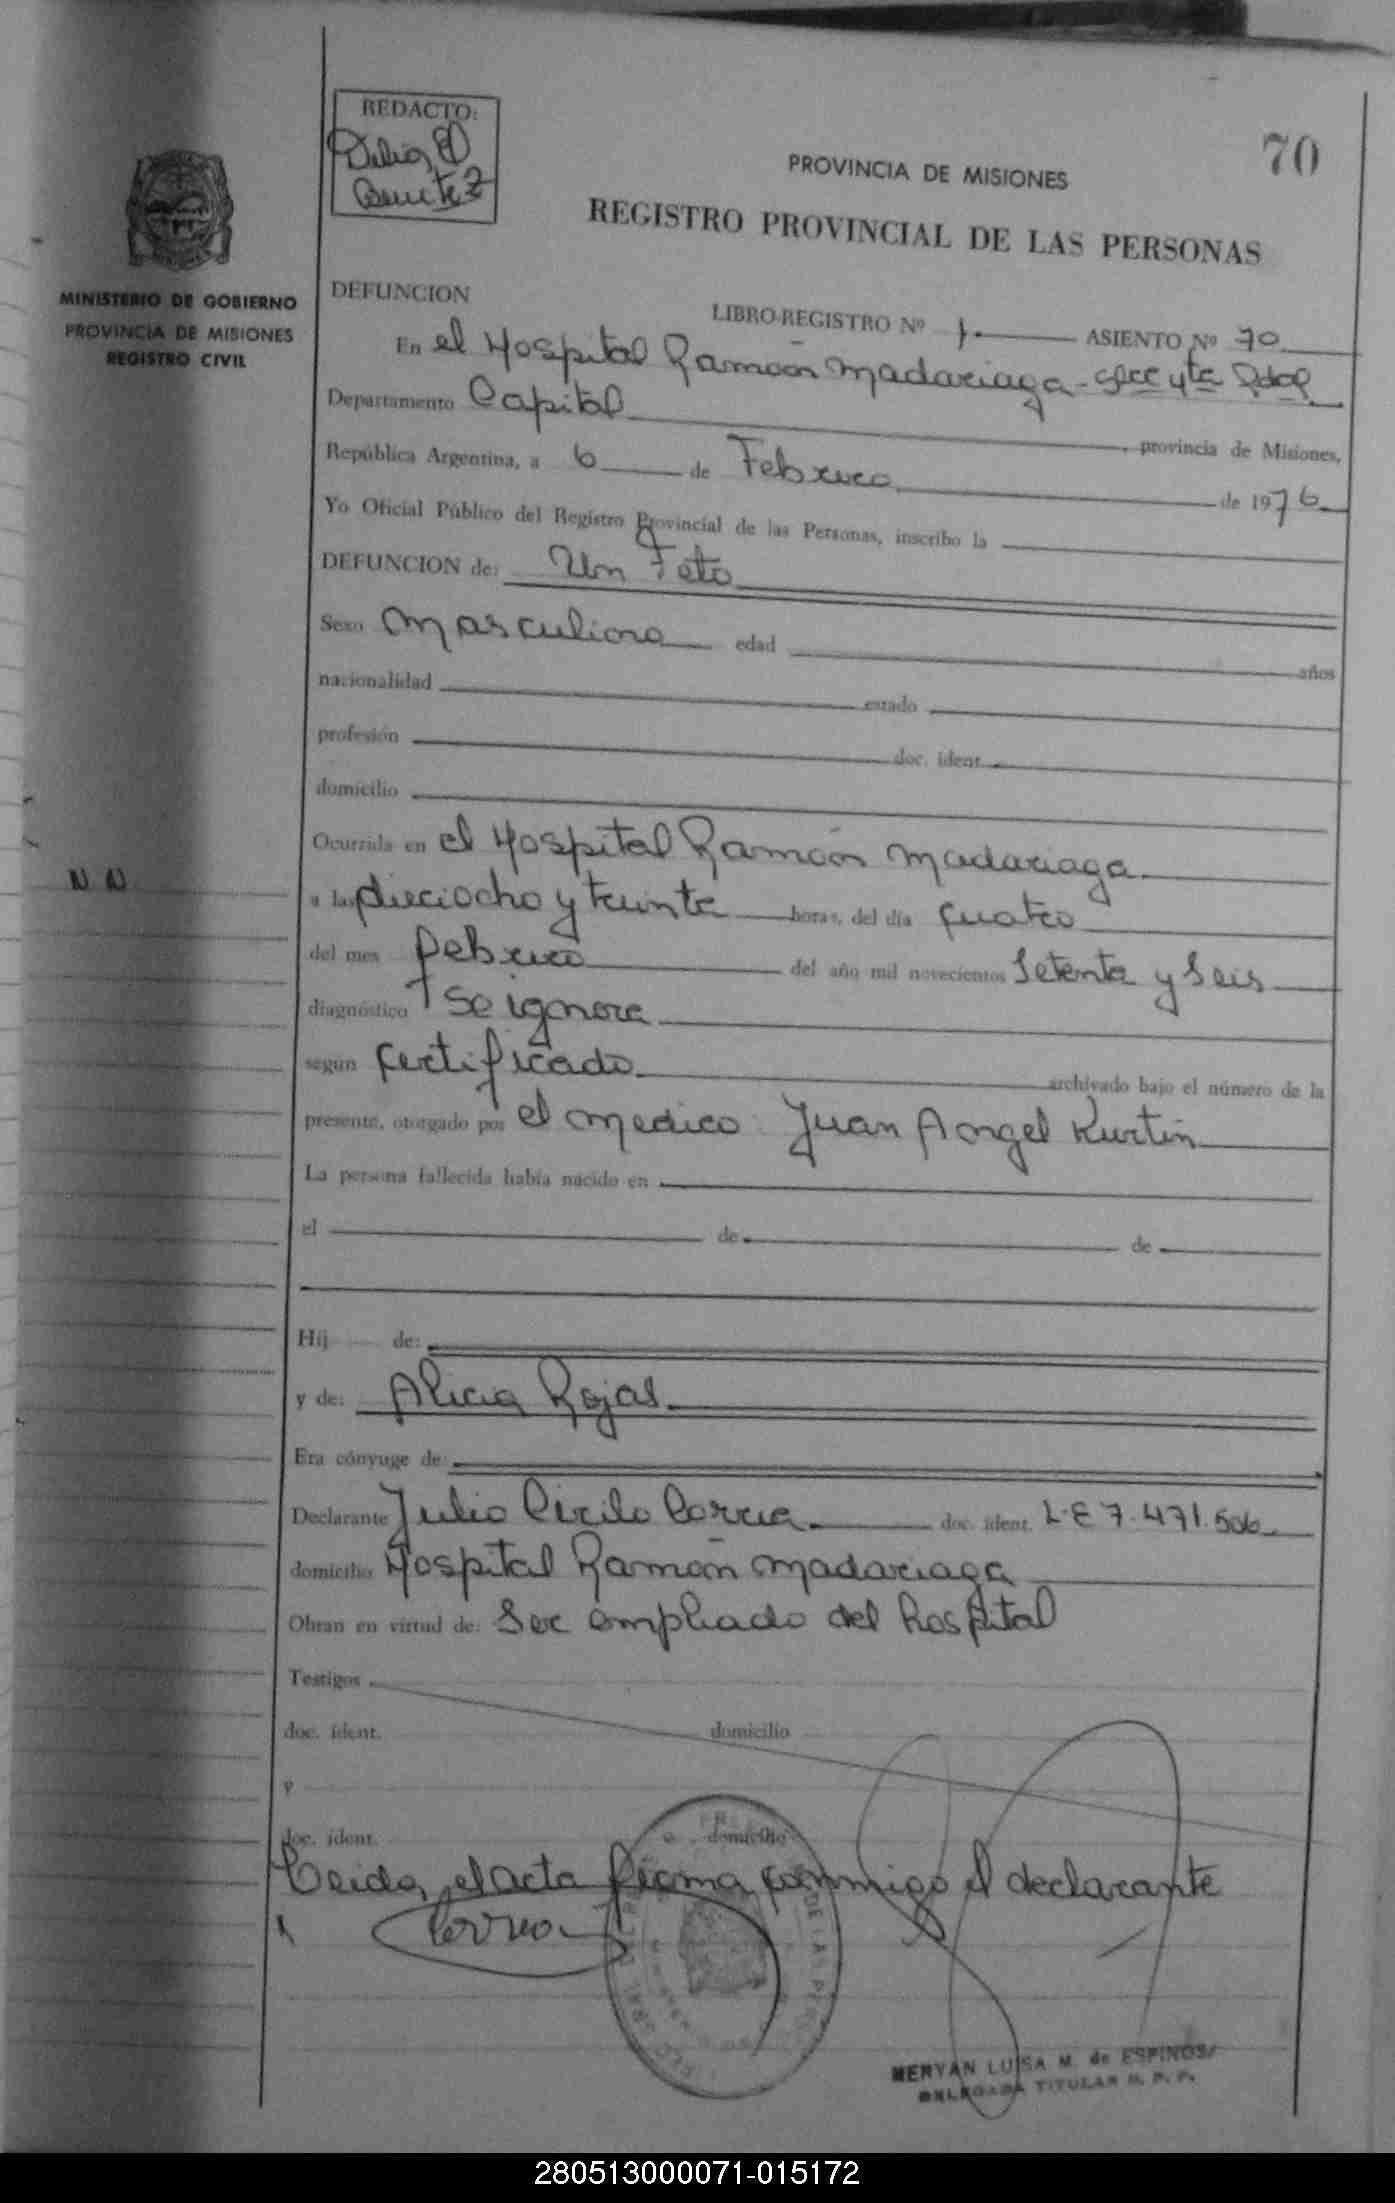 REDACTO:
Delia
Benitez
70
PROVINCIA DE MISIONES
REGISTRO PROVINCIAL DE LAS PERSONAS
MINISTERIO DE GOBIERNO
PROVINCIA DE MISIONES
REGISTRO CIVIL
DEFUNCION
LIBRO-REGISTRO Nº 1 ASIENTO Nº 70
En el Hospital Ramón Madariaga
Departamento Capital, provincia de Misiones,
República Argentina, a 6 de Febrero de 1976
Yo Oficial Público del Registro Provincial de las Personas, inscribo la
DEFUNCION de: Un Feto
Sexo Masculino edad años
nacionalidad estado
profesión doc. ident.
domicilio
Ocurrida en el Hospital Ramón Madariaga
NN
a las dieciocho y treinta horas, del día cuatro
del mes febrero del año mil novecientos Setenta y Seis
diagnóstico Se ignora
según Certificado archivado bajo el número de la
presente, otorgado por el medico: Juan Angel Kurtin
La persona fallecida había nacido en
el de de
Hij de:
y de: Alicia Rojas
Era cónyuge de:
Declarante Julio Cirilo Correa doc. ident. L.E 7.471.506
domicilio Hospital Ramón Madariaga
Obran en virtud de: Ser empleado del hospital
Testigos
doc. ident. domicilio
y
doc. ident. domicilio
Leida, el acta firma conmigo el declarante
Correa
DE LAS
MERYAN LUISA M. de ESPINOSA
DELEGADA TITULAR R. P. P.
280513000071-015172